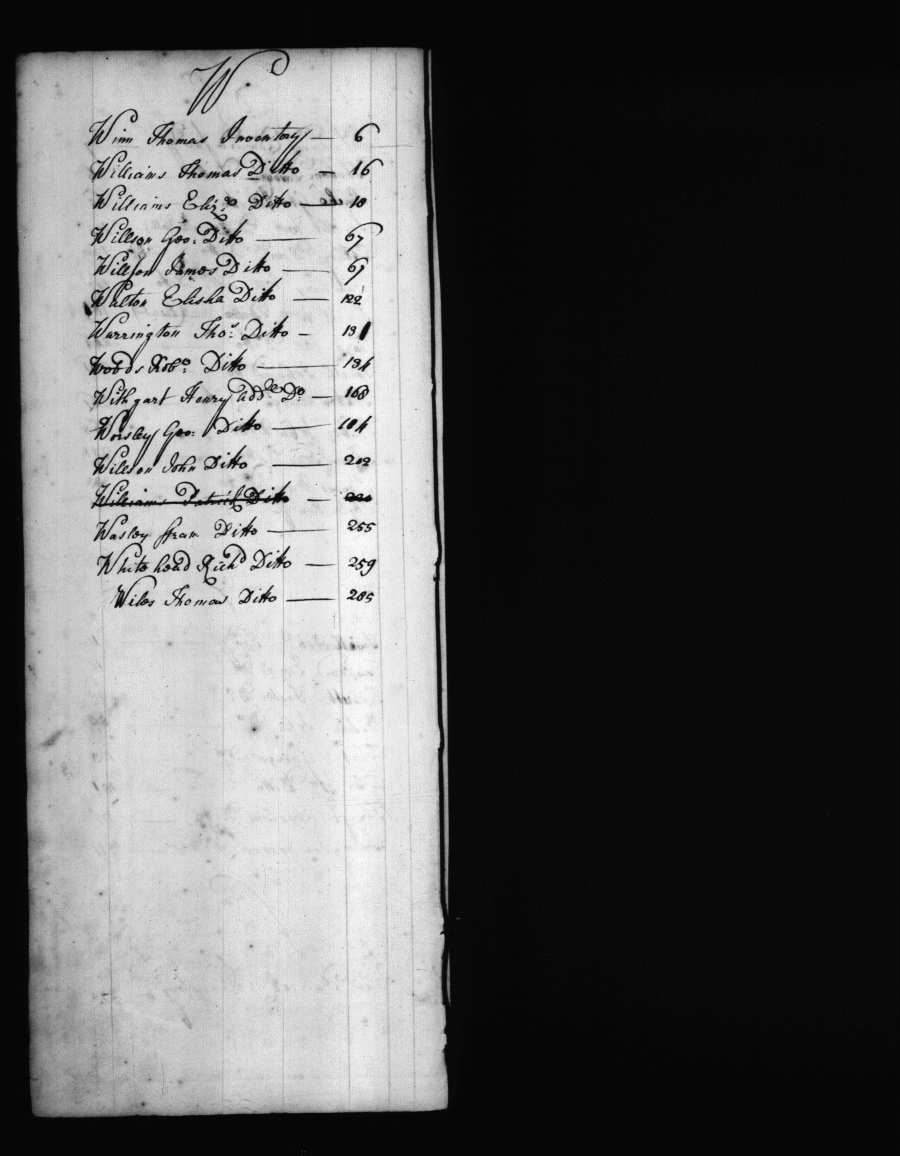 W
Winn Thomas Inventory — 6
Williams Thomas Ditto — 16
Williams Eliz.a Ditto — 18
Willson Geo. Ditto — 67
Willson James Ditto — 67
Walton Elisha Ditto — 122
Warrington Tho.s Ditto — 131
Woods Rob.t Ditto — 134
Withgart Henry add.l D.o — 168
Worsley Geo: Ditto — 184
Willson John Ditto — 202
Williams Patrick Ditto — 220
Wasley ffran Ditto — 255
Whitehead Rich.d Ditto — 259
Wiles Thomas Ditto — 285